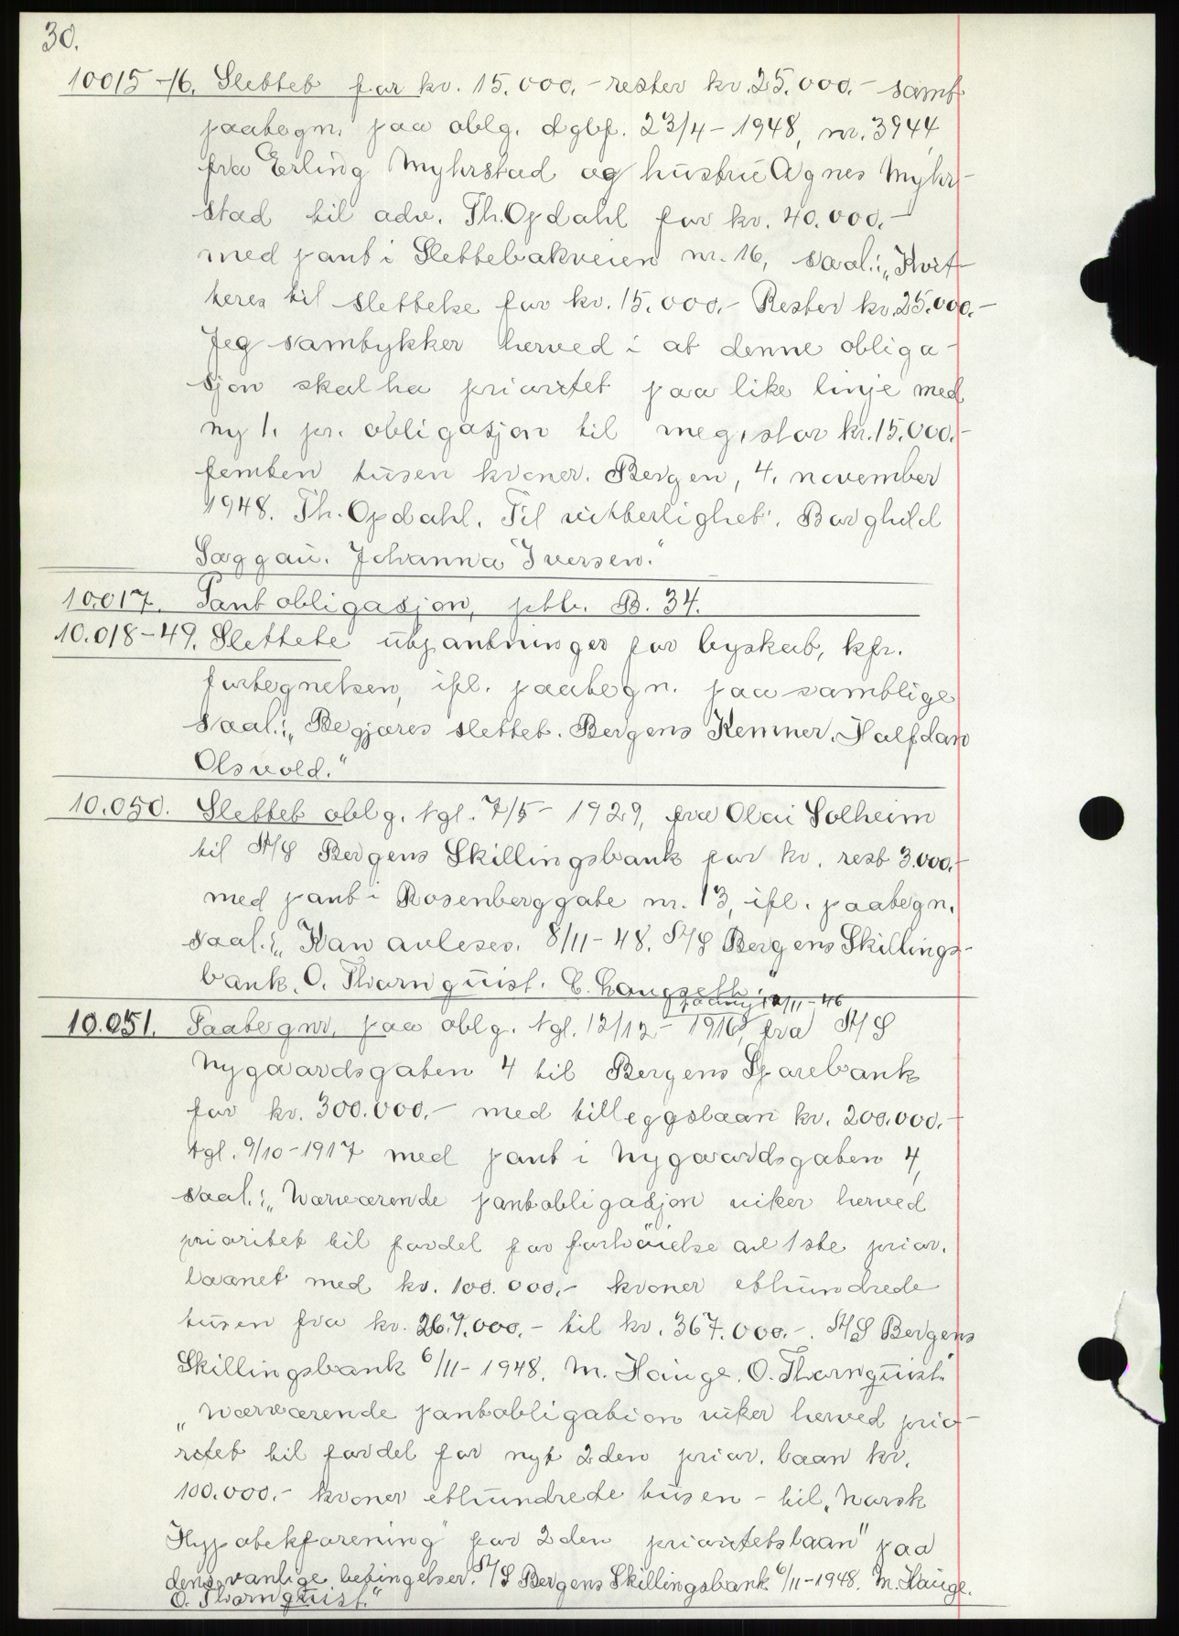 30.
10015-16. Slettet for kr. 15.000.- rester kr. 25.000.- samt
paategn. paa oblg. dgbf. 23/4-1948, nr. 3944,
fra Erling Myhrstad og hustru Agnes Myhr-
stad til adv. Th. Opdahl for kr. 40.000.-
med pant i Slettebakveien nr. 16, saal.: „Kvit-
teres til slettelse for kr. 15.000.- Rester kr. 25.000.-
Jeg samtykker herved i at denne obliga-
sjon skal ha prioritet paa like linje med
ny 1. pr. obligasjon til meg, stor kr. 15.000.-
femten tusen kroner. Bergen, 4. november
1948. Th. Opdahl. Til vitterlighet: Borghild
Saggau. Johanna Iversen."
10.017. Pantobligasjon, ptb. B. 34.
10.018-49. Slettete utpantninger for byskat, kfr.
fortegnelsen, ifl. paategn. paa samtlige
saal.: „Begjæres slettet. Bergens Kemner. Halfdan
Olsvold."
10.050. Slettet oblg. tgl. 7/5-1929, fra Olai Solheim
til A/S Bergens Skillingsbank for kr. rest 3.000.-
med pant i Rosenberggate nr. 13, ifl. paategn.
saal.: „Kan avleses. 8/11-48. A/S Bergens Skillings-
bank. O. Thornquist. E. Langseth."
paany 12/11-46
10.051. Paategnr. paa oblg. tgl. 12/12-1916, fra A/S
Nygaardsgaten 4 til Bergens Sparebank
for kr. 300.000.- med tilleggslaan kr. 200.000.-
tgl. 9/10-1917 med pant i Nygaardsgaten 4,
saal.: „Nærværende pantobligasjon viker herved
prioritet til fordel for forhöielse av 1ste prior.
laanet med kr. 100.000.- kroner ethundrede
tusen fra kr. 267.000.- til kr. 367.000.-. A/S Bergens
Skillingsbank 6/11-1948. M. Hauge. O. Thornquist."
„Nærværende pantobligation viker herved prio-
ritet til fordel for nyt 2den prior. laan kr.
100.000.- kroner ethundrede tusen - til „Norsk
Hypotekforening" for 2den prioritetslaan" paa
dens vanlige betingelser. A/S Bergens Skillingsbank 6/11-1948. M. Hauge.
O. Thornquist."